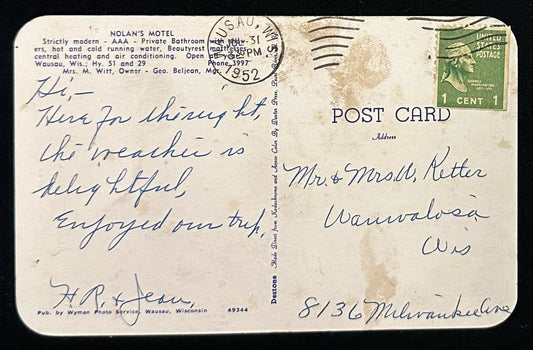 NOLAN'S MOTEL
Strictly modern - AAA - Private Bathroom with
ers, hot and cold running water, Beautyrest mattresses
central heating and air conditioning. Open all
Wausau, Wis.; Hy. 51 and 29 Phone 3997
Mrs. M. Witt, Owner - Geo. Beljean, Mgr.
WAUSAU, WIS.
31
PM
1952
UNITED
STATES
POSTAGE
1 CENT 1
Hi,-
Here for the night,
the weather is
delightful,
Enjoyed our trip,
H.R. & Jean,
Pub. by Wyman Photo Service, Wausau, Wisconsin 49344
Dextone Made Direct from Kodachrome and Ansco Color By Dexter Press,
POST CARD
Address
Mr. & Mrs. W. Ketter
Wauwalosa
Wis
8136 Milwaukee Ave